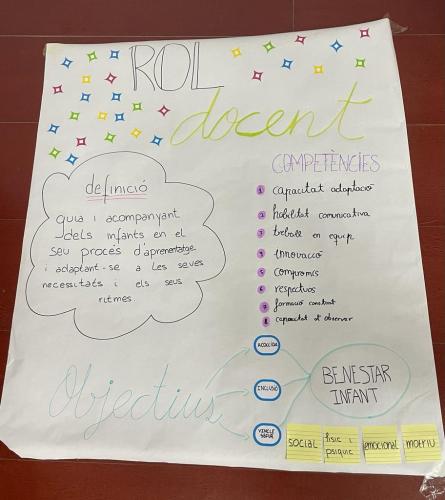 ROL
docent
definició
guia i acompanyant
dels infants en el
seu procés d'aprenentatge
i adaptant-se a les seves
necessitats i els seus
ritmes
COMPETÈNCIES
1 capacitat adaptació
2 habilitat comunicativa
3 treball en equip
4 innovació
5 compromís
6 respectuos
7 formació constant
8 capacitat d'observar
Objectius
ACOLLIDA
INCLUSIÓ
VINCLE
SEGUR
BENESTAR
INFANT
social
físic i
psíquic
emocional
motriu